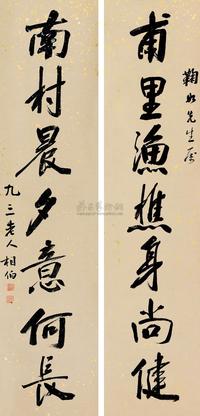 鞠如先生属
甫里渔樵身尚健
南村晨夕意何長
九三老人相伯